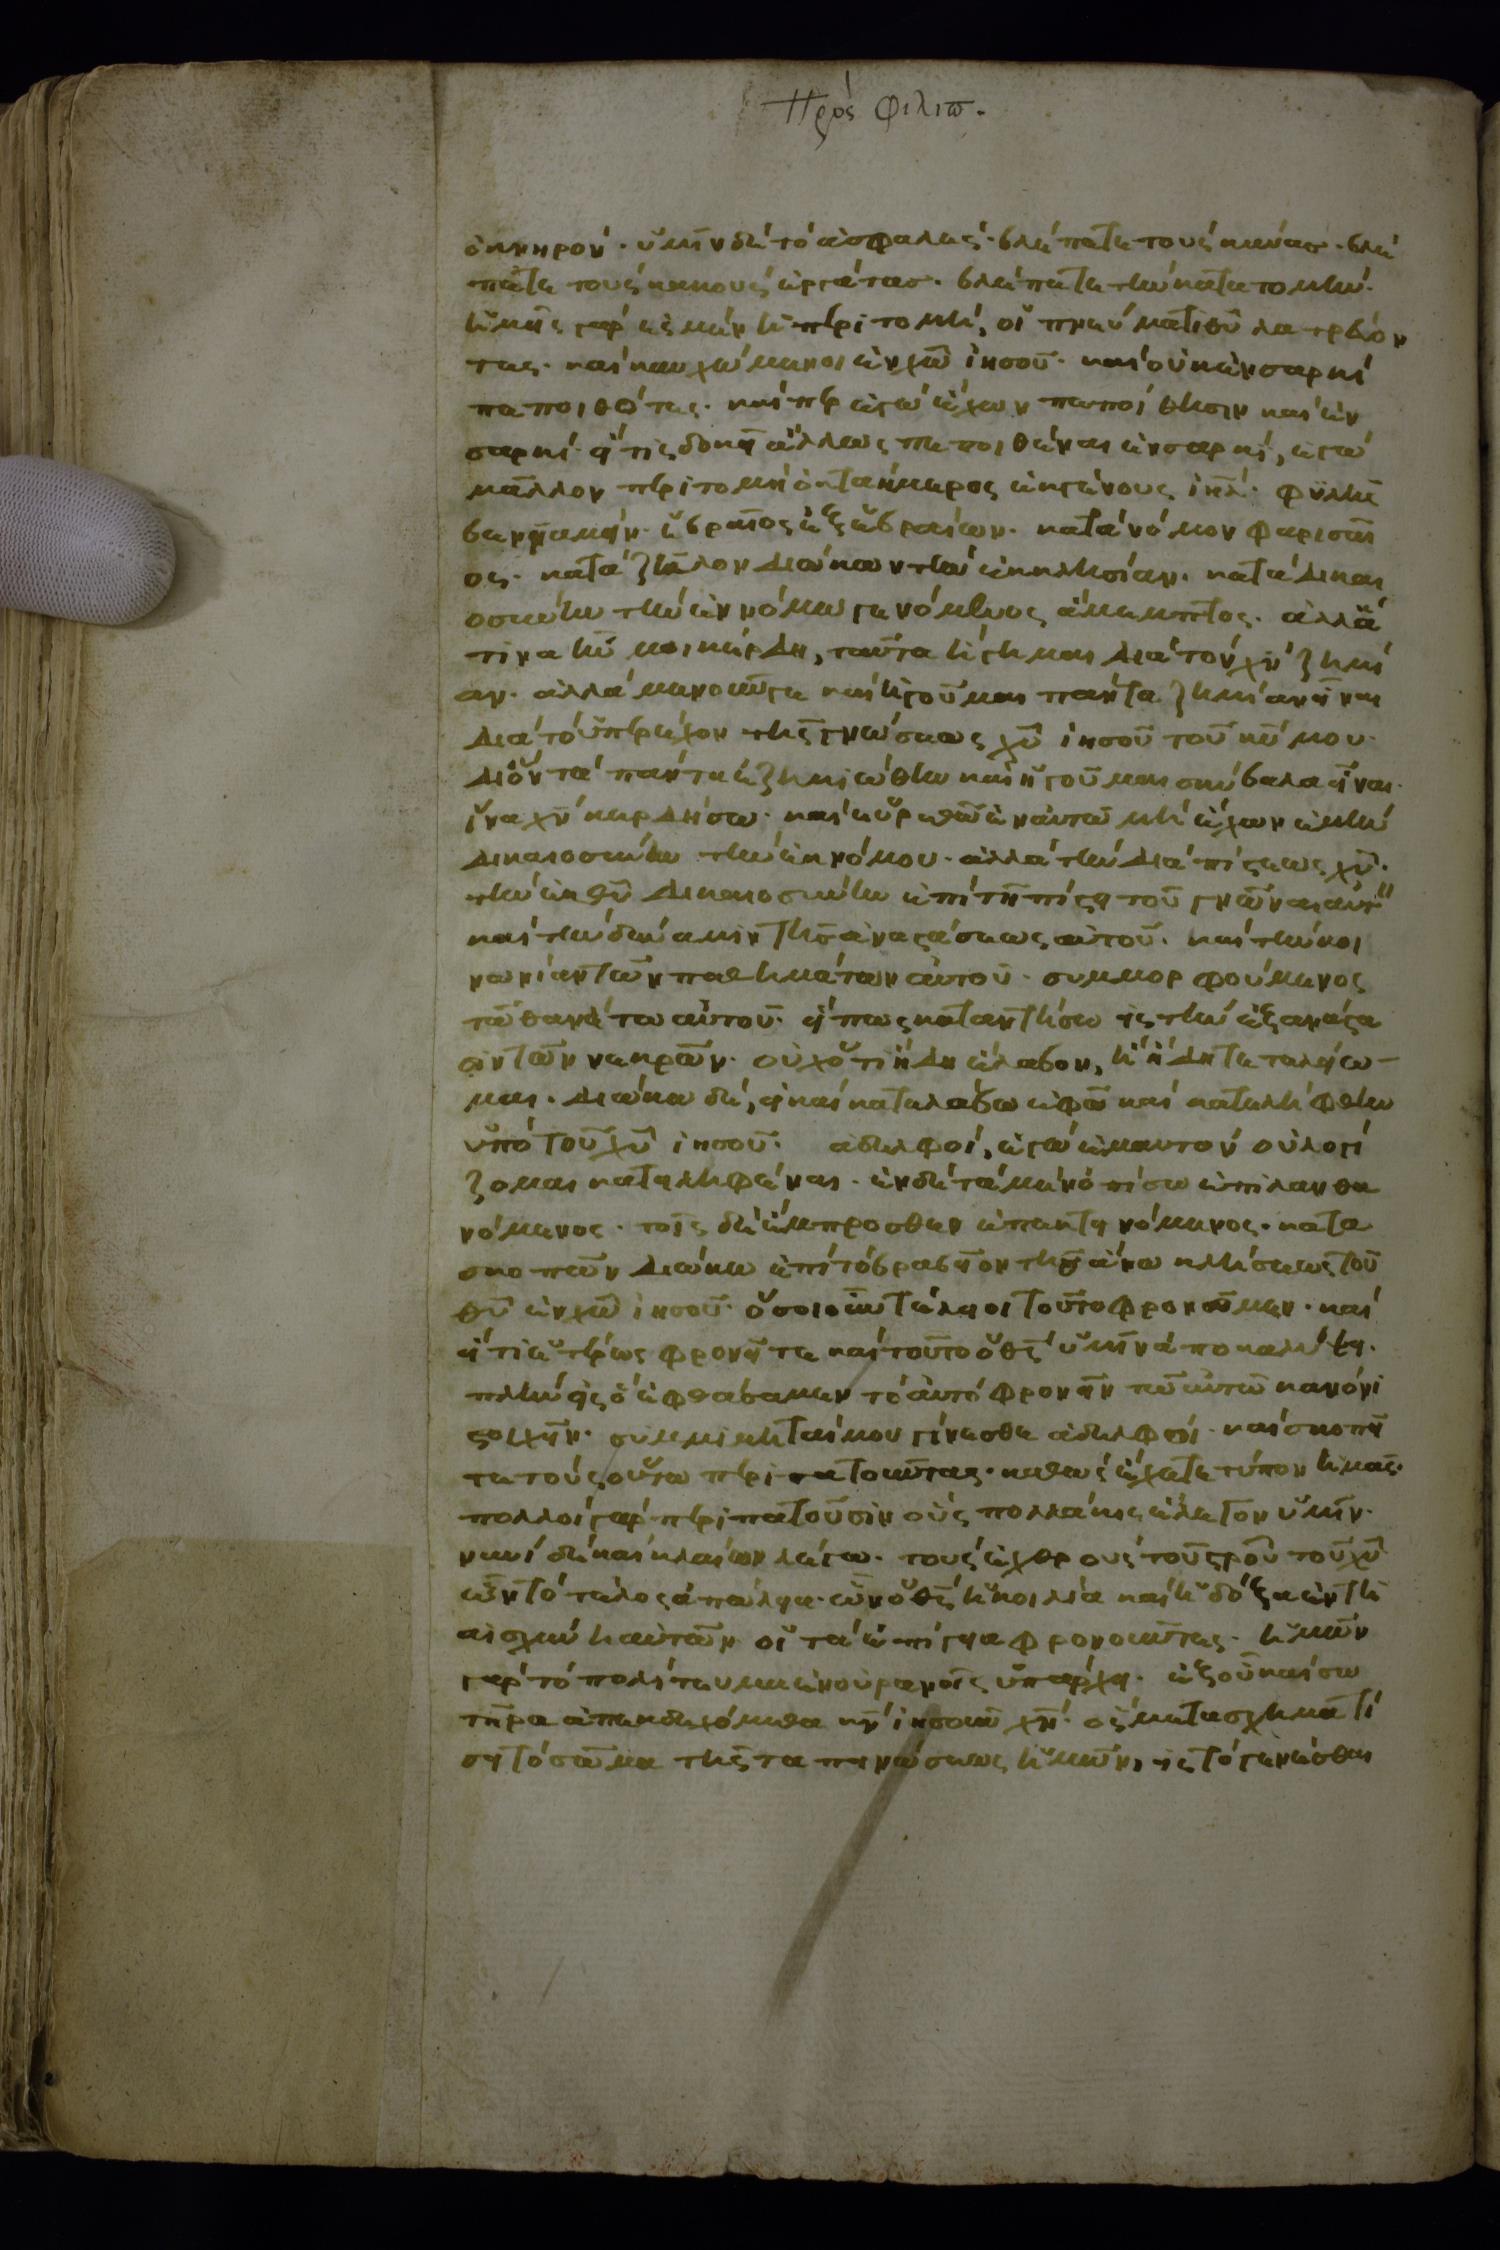 Πρὸς Φιλιπ.
ὀκνηρόν· ὑμῖν δὲ τὸ ἀσφαλές· βλέπετε τοὺς κύνας· βλέ
πετε τοὺς κακοὺς ἐργάτας· βλέπετε τὴν κατατομήν·
ἡμεῖς γάρ ἐσμεν ἡ περιτομή, οἱ πνεύματι θῦ λατρεύον
τες· καὶ καυχώμενοι ἐν χῶ ἰησοῦ· καὶ οὐκ ἐν σαρκὶ
πεποιθότες· καίπερ ἐγὼ ἔχων πεποίθησιν καὶ ἐν
σαρκί· εἴ τις δοκεῖ ἄλλως πεποιθέναι ἐν σαρκί, ἐγὼ
μᾶλλον περιτομῆ ὀκταήμερος ἐκ γένους ἰηλ· φυλῆς
βενϊαμίν· ἑβραῖος ἐξ ἑβραίων· κατὰ νόμον φαρισαῖ
ος· κατὰ ζῆλον διώκων τὴν ἐκκλησίαν· κατὰ δικαι
οσύνην τὴν ἐν νόμω γενόμενος ἄμεμπτος· ἀλλ' ἅ
τινα ἦν μοι κέρδη, ταῦτα ἥγημαι διὰ τὸν χν ζημί
αν· ἀλλὰ μενοῦνγε καὶ ἡγοῦμαι πάντα ζημίαν εἶναι
διὰ τὸ ὑπερέχον τῆς γνώσεως χῦ ἰησοῦ τοῦ κῦ μου·
δι' ὃν τὰ πάντα ἐζημιώθην καὶ ἡγοῦμαι σκύβαλα εἶναι·
ἵνα χν κερδήσω· καὶ εὑρεθῶ ἐν αὐτῶ μὴ ἔχων ἐμὴν
δικαιοσύνην τὴν ἐκ νόμου· ἀλλὰ τὴν διὰ πίστεως χῦ·
τὴν ἐκ θῦ δικαιοσύνην ἐπὶ τῆ πίστει τοῦ γνῶναι αὐτὸν
καὶ τὴν δύναμιν τῆς ἀναστάσεως αὐτοῦ· καὶ τὴν κοι
νωνίαν τῶν παθημάτων αὐτοῦ· συμμορφούμενος
τῶ θανάτω αὐτοῦ· εἴ πως καταντήσω εἰς τὴν ἐξανάστα
σιν τῶν νεκρῶν· οὐχ ὅτι ἤδη ἔλαβον, ἢ ἤδη τετελείω-
μαι· διώκω δέ, εἰ καὶ καταλάβω ἐφ' ὧ καὶ κατελήφθην
ὑπὸ τοῦ χῦ ἰησοῦ· ἀδελφοί, ἐγὼ ἐμαυτὸν οὐ λογί
ζομαι κατειληφέναι· ἓν δὲ τὰ μὲν ὀπίσω ἐπιλανθα
νόμενος· τοῖς δὲ ἔμπροσθεν ἐπεκτεινόμενος· κατὰ
σκοπὸν διώκω ἐπὶ τὸ βραβεῖον τῆς ἄνω κλήσεως τοῦ
θῦ ἐν χῶ ἰησοῦ· ὅσοι οὖν τέλειοι τοῦτο φρονοῦμεν· καὶ
εἴ τι ἑτέρως φρονεῖτε καὶ τοῦτο ὁ θς ὑμῖν ἀποκαλύψει·
πλὴν εἰς ὃ ἐφθάσαμεν τὸ αὐτὸ φρονεῖν τῶ αὐτῶ κανόνι
στοιχεῖν· συμμιμηταί μου γίνεσθε ἀδελφοί· καὶ σκοπεῖ
τε τοὺς οὕτω περιπατοῦντας· καθὼς ἔχετε τύπον ἡμᾶς·
πολλοὶ γὰρ περιπατοῦσιν οὓς πολλάκις ἔλεγον ὑμῖν·
νυνὶ δὲ καὶ κλαίων λέγω· τοὺς ἐχθροὺς τοῦ στροῦ τοῦ χῦ
ὧν τὸ τέλος ἀπώλεια· ὧν ὁ θς ἡ κοιλία καὶ ἡ δόξα ἐν τῆ
αἰσχύνη αὐτῶν οἱ τὰ ἐπίγεια φρονοῦντες· ἡμῶν
γὰρ τὸ πολίτευμα ἐν οὐρανοῖς ὑπάρχει· ἐξ οὗ καὶ σω
τῆρα ἀπεκδεχόμεθα κν ἰησοῦν χν· ὃς μετασχηματί
σει τὸ σῶμα τῆς ταπεινώσεως ἡμῶν, εἰς τὸ γενέσθαι